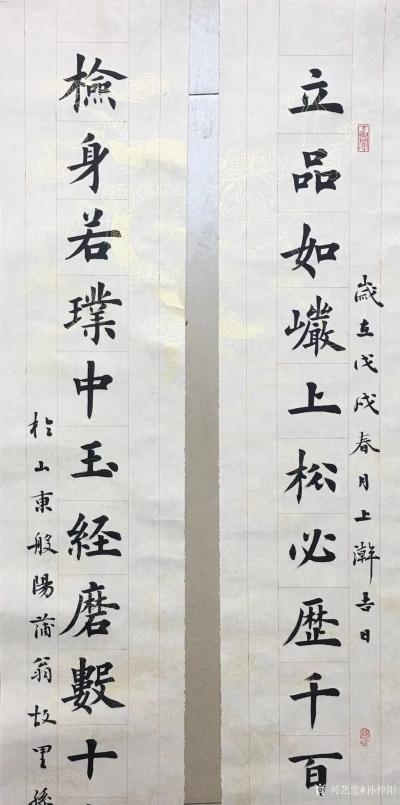 歲在戊戌春月上澣吉日
立品如巗上松必歷千百
檢身若璞中玉経磨數十
於山東般陽蒲翁故里孫
兴艺堂#孙仲阳